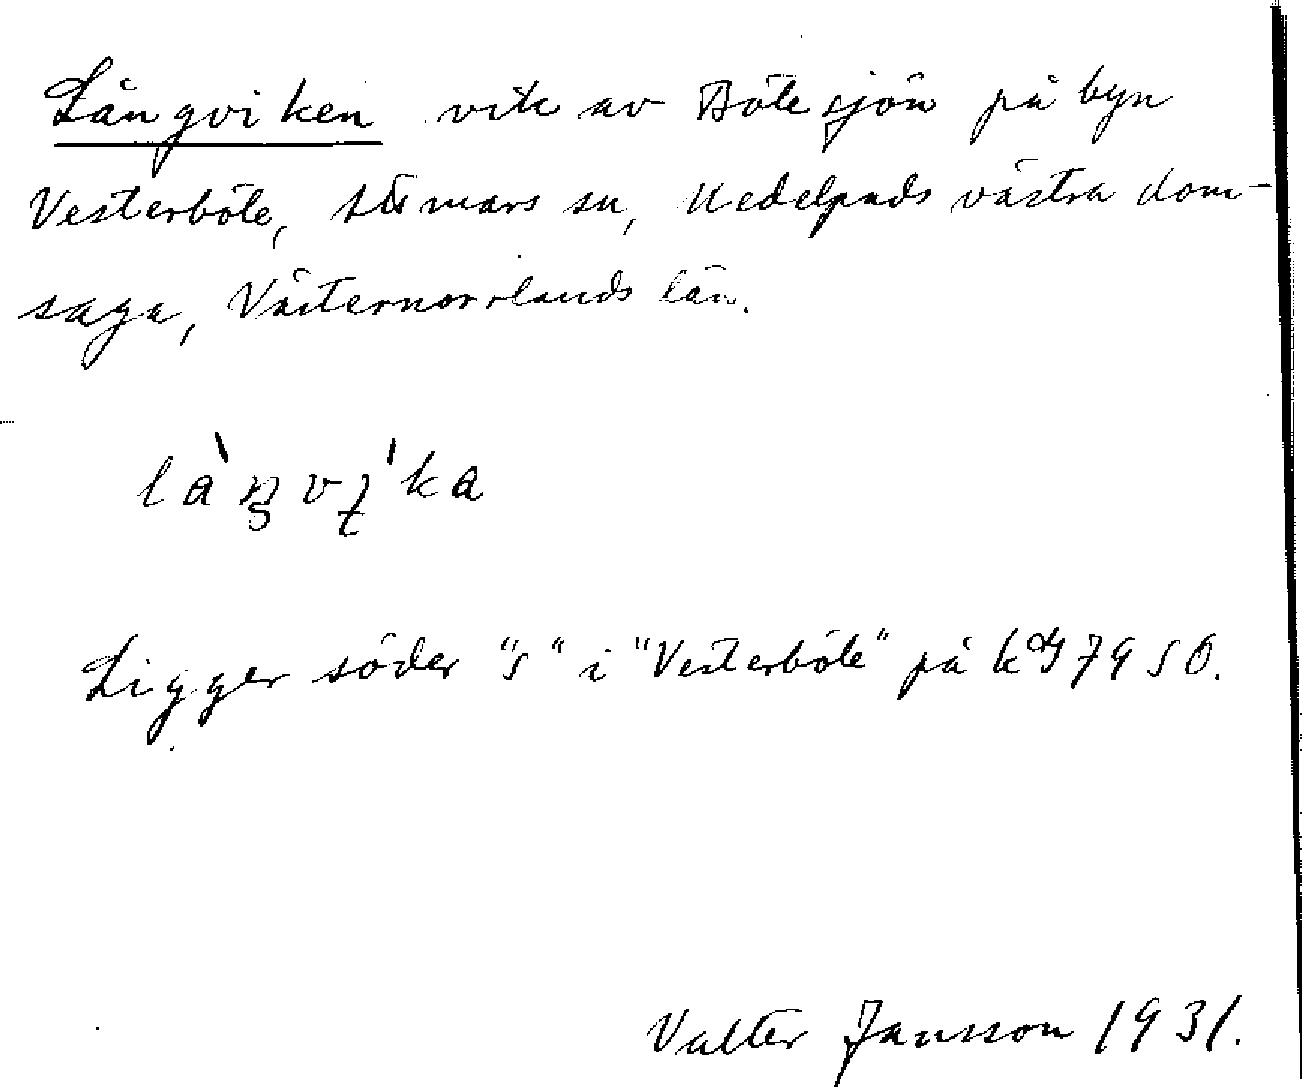 Långviken vik av Bölesjön på byn
Vesterböle, Attmars sn, Medelpads västra dom-
saga, Västernorrlands län.
Ligger söder "s" i "Vesterböle" på kbl 79 SO.
Valter Jansson 1931.